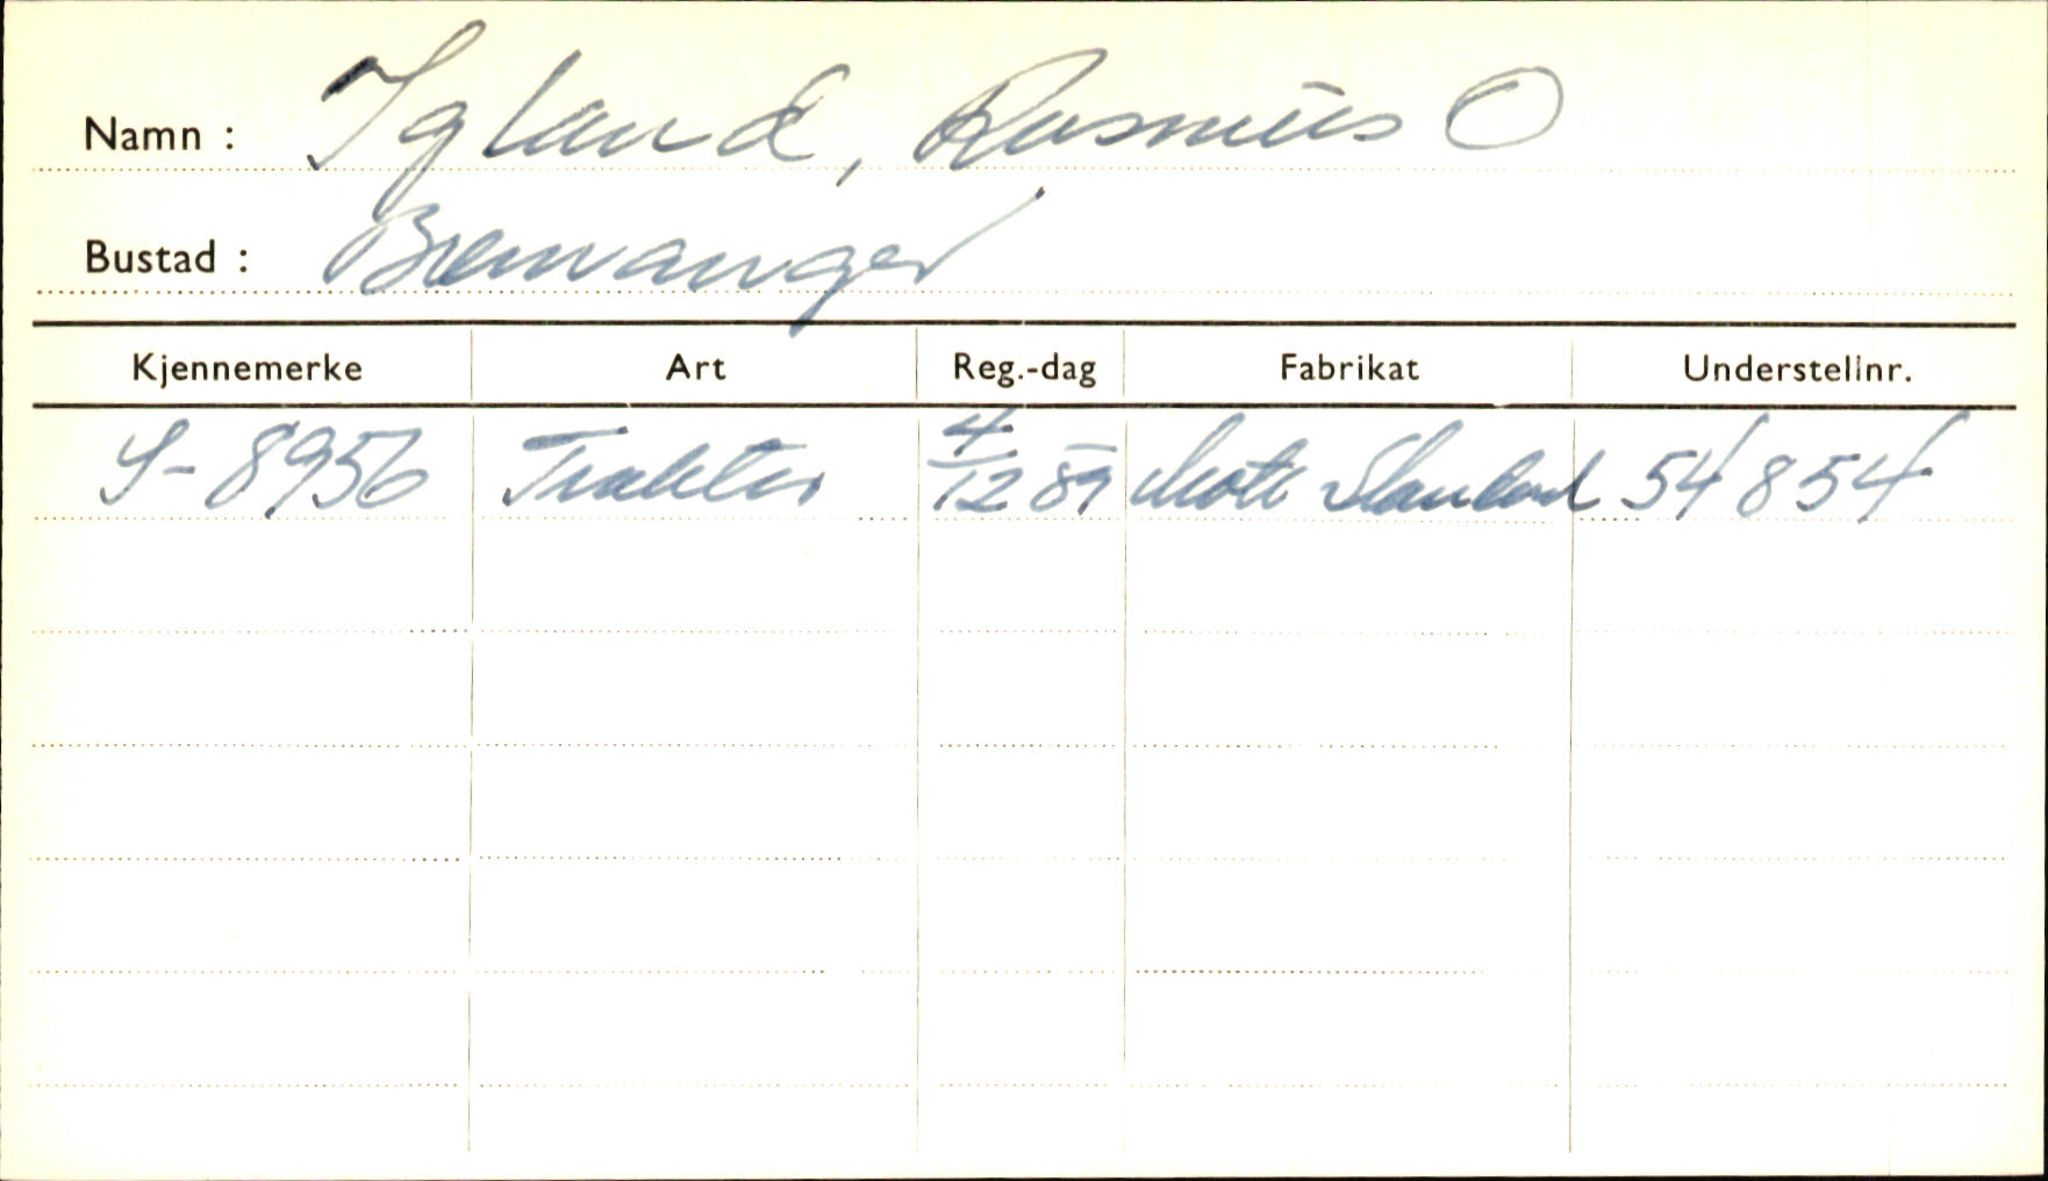 Namn : Igland, Rasmus O
Bustad : Bremanger
Kjennemerke Art Reg.-dag Fabrikat Understellnr.
S-8956 Traktor 4/12 59 Standard 54854